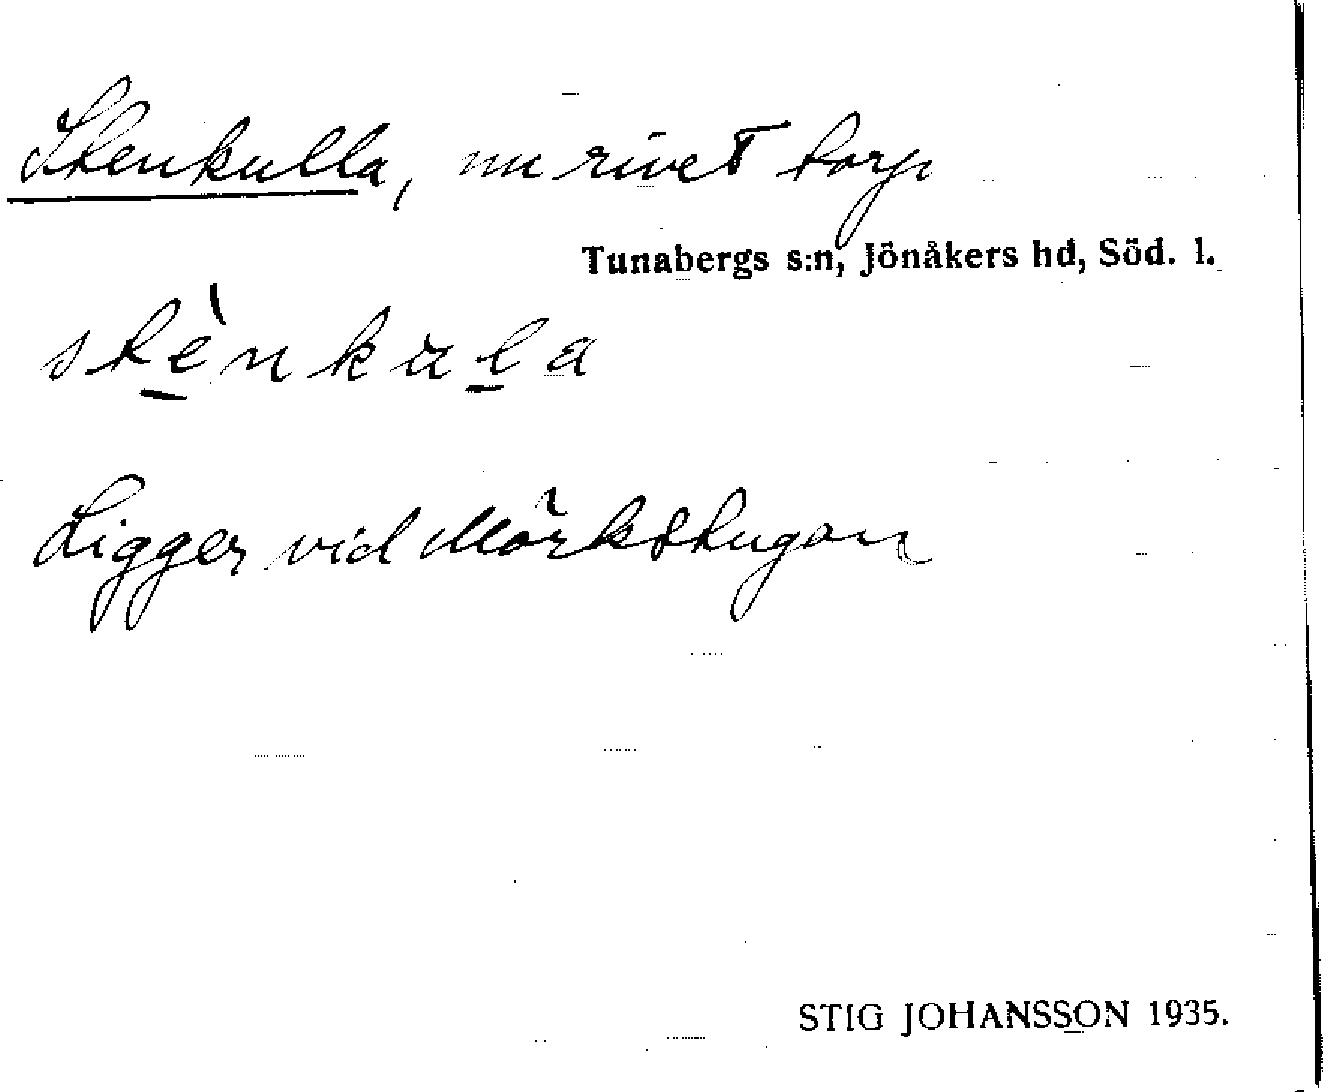 Stenkulla, nu rivet torp
Tunabergs s:n, Jönåkers hd, Söd. l.
stènkula
Ligger vid Mörkstugan
STIG JOHANSSON 1935.